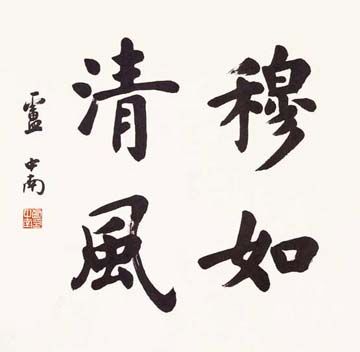 穆如
清風
盧中南